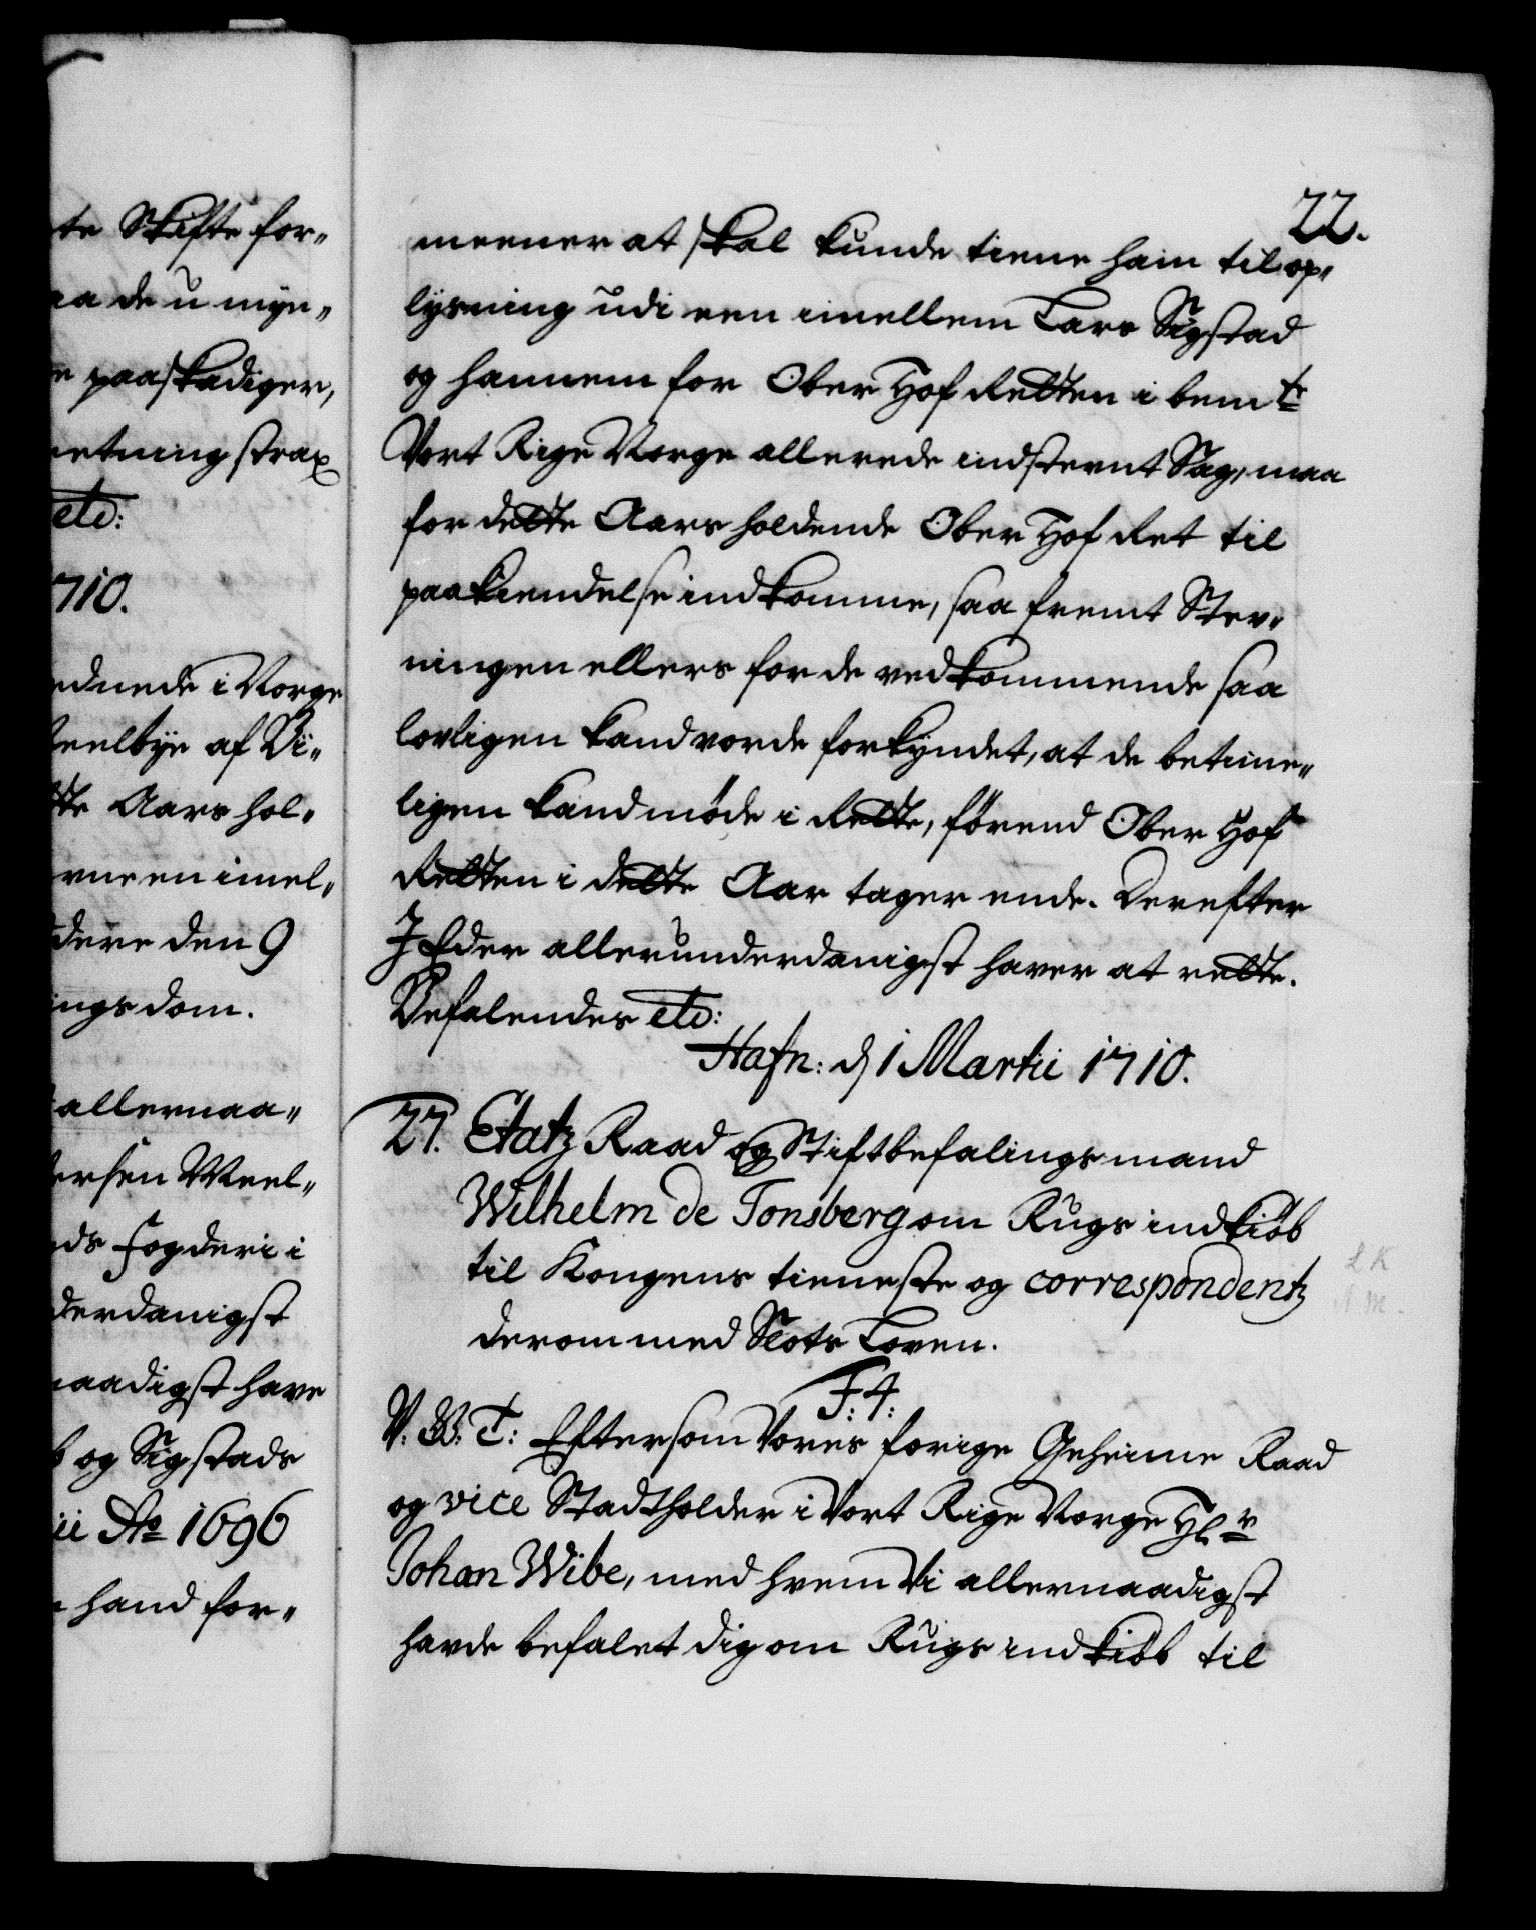 te Skifte for„
aa de u myn„
e paaskadiger,
retning strax
etc:
710.
ednede i Norge
eelbye af Vi„
te Aars hol„
rne en imel„
dere den 9
ings dom.
allernaa„
ersen Weel„
ds fogderi i
derdanigst
naadigst have
og Sigstads
ii Ao 1696
hand for„
22.
meener at skal kunde tiene ham til op„
lysning udi een imellem Lars Sigstad
og hannem for Ober Hof Retten i bemte
Vort Rige Norge allerede indstevnt Sag, maa
for dette Aars holdende Ober Hof Ret til
paakiendelse indkomme, saa fremt Stev„
ningen ellers for de vedkommende saa
lovligen kand vorde forkyndet, at de betime„
ligen kand møde i Rette, førend Ober Hof
Retten i dette Aar tager ende. Derefter
I Eder allerunderdanigst haver at rette.
Befalendes etc:
Hafn: d 1 Martii 1710.
27. Etatz Raad og Stiftbefalingsmand
Wilhelm de Tonsberg om Rugs indkiøb
til Kongens tieneste og correspondentz
derom med Slots Loven.
F: 4:
V. G. T: Eftersom Vores forige Geheime Raad
og vice Stadtholder i Vort Rige Norge Hr
Johan Wibe, med hvem Vi allernaadigst
havde befalet dig om Rugs indkiøb til